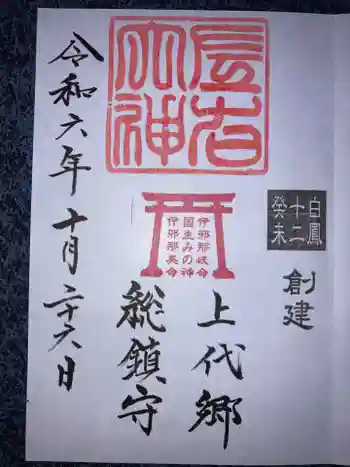 白鳳
十二
癸未
創建
辰右
大神
伊邪那岐命
國生みの神
伊邪那美命
上代郷
総鎮守
令和六年十月二十六日